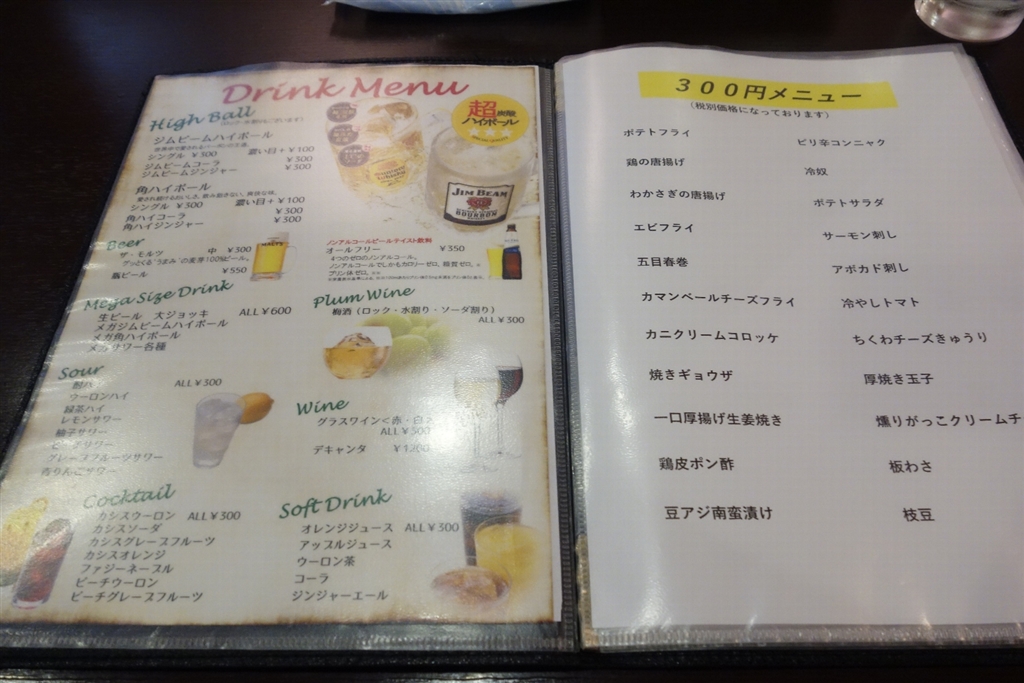 Drink Menu
High Ball
ジムビームハイボール
シングル ¥300 濃い目+¥100
ジムビームコーラ ¥300
ジムビームジンジャー ¥300
角ハイボール
シングル ¥300 濃い目+¥100
角ハイコーラ ¥300
角ハイジンジャー ¥300
超
炭酸
ハイボール
JIM BEAM
BOURBON
Beer
ザ・モルツ 中 ¥300
瓶ビール ¥550
ノンアルコールビールテイスト飲料
オールフリー ¥350
4つのゼロのノンアルコール。
Mega Size Drink
生ビール 大ジョッキ ALL¥600
メガジムビームハイボール
メガ角ハイボール
メガサワー各種
Plum Wine
梅酒(ロック・水割り・ソーダ割り)
ALL¥300
Sour
酎ハイ ALL¥300
ウーロンハイ
緑茶ハイ
レモンサワー
柚子サワー
グレープフルーツサワー
青りんごサワー
Wine
グラスワイン<赤・白>
ALL¥300
デキャンタ
Cocktail
カシスウーロン ALL¥300
カシスソーダ
カシスグレープフルーツ
カシスオレンジ
ファジーネーブル
ピーチウーロン
ピーチグレープフルーツ
Soft Drink
オレンジジュース ALL¥300
アップルジュース
ウーロン茶
コーラ
ジンジャーエール
300円メニュー
(税別価格になっております)
ポテトフライ
鶏の唐揚げ
わかさぎの唐揚げ
エビフライ
五目春巻
カマンベールチーズフライ
カニクリームコロッケ
焼きギョウザ
一口厚揚げ生姜焼き
鶏皮ポン酢
豆アジ南蛮漬け
ピリ辛コンニャク
冷奴
ポテトサラダ
サーモン刺し
アボカド刺し
冷やしトマト
ちくわチーズきゅうり
厚焼き玉子
燻りがっこクリームチ
板わさ
枝豆